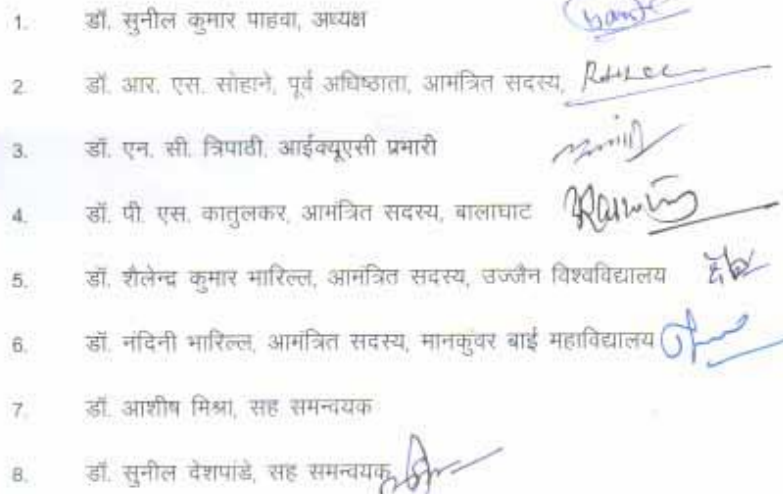 1. डॉ. सुनील कुमार पाहवा, अध्यक्ष
2. डॉ. आर. एस. सोहाने, पूर्व अधिष्ठाता, आमंत्रित सदस्य,
3. डॉ. एन. सी. त्रिपाठी, आईक्यूएसी प्रभारी
4. डॉ. पी. एस. कातुलकर, आमंत्रित सदस्य, बालाघाट
5. डॉ. शैलेन्द्र कुमार भारिल्ल, आमंत्रित सदस्य, उज्जैन विश्वविद्यालय
6. डॉ. नंदिनी भारिल्ल, आमंत्रित सदस्य, मानकुंवर बाई महाविद्यालय
7. डॉ. आशीष मिश्रा, सह समन्वयक
8. डॉ. सुनील देशपांडे, सह समन्वयक